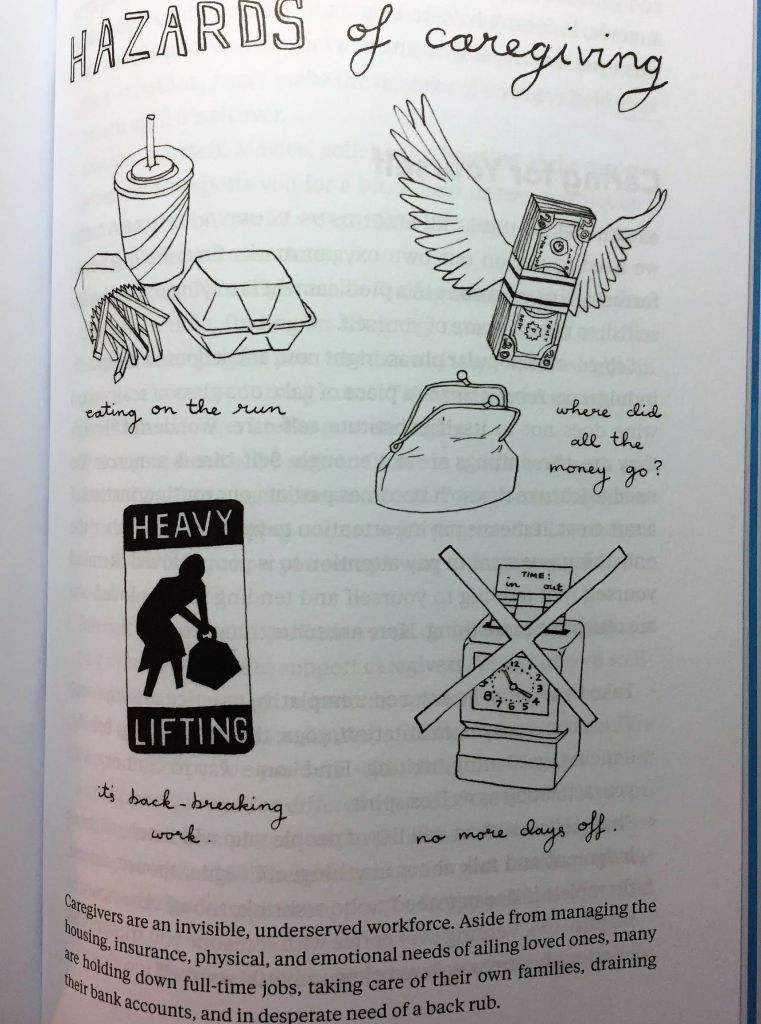 HAZARDS of caregiving
eating on the run
where did
all the
money go?
HEAVY
LIFTING
TIME:
in out
12
1
2
3
4
5
6
7
8
it's back-breaking
work.
no more days off.
Caregivers are an invisible, underserved workforce. Aside from managing the
housing, insurance, physical, and emotional needs of ailing loved ones, many
are holding down full-time jobs, taking care of their own families, draining
their bank accounts, and in desperate need of a back rub.